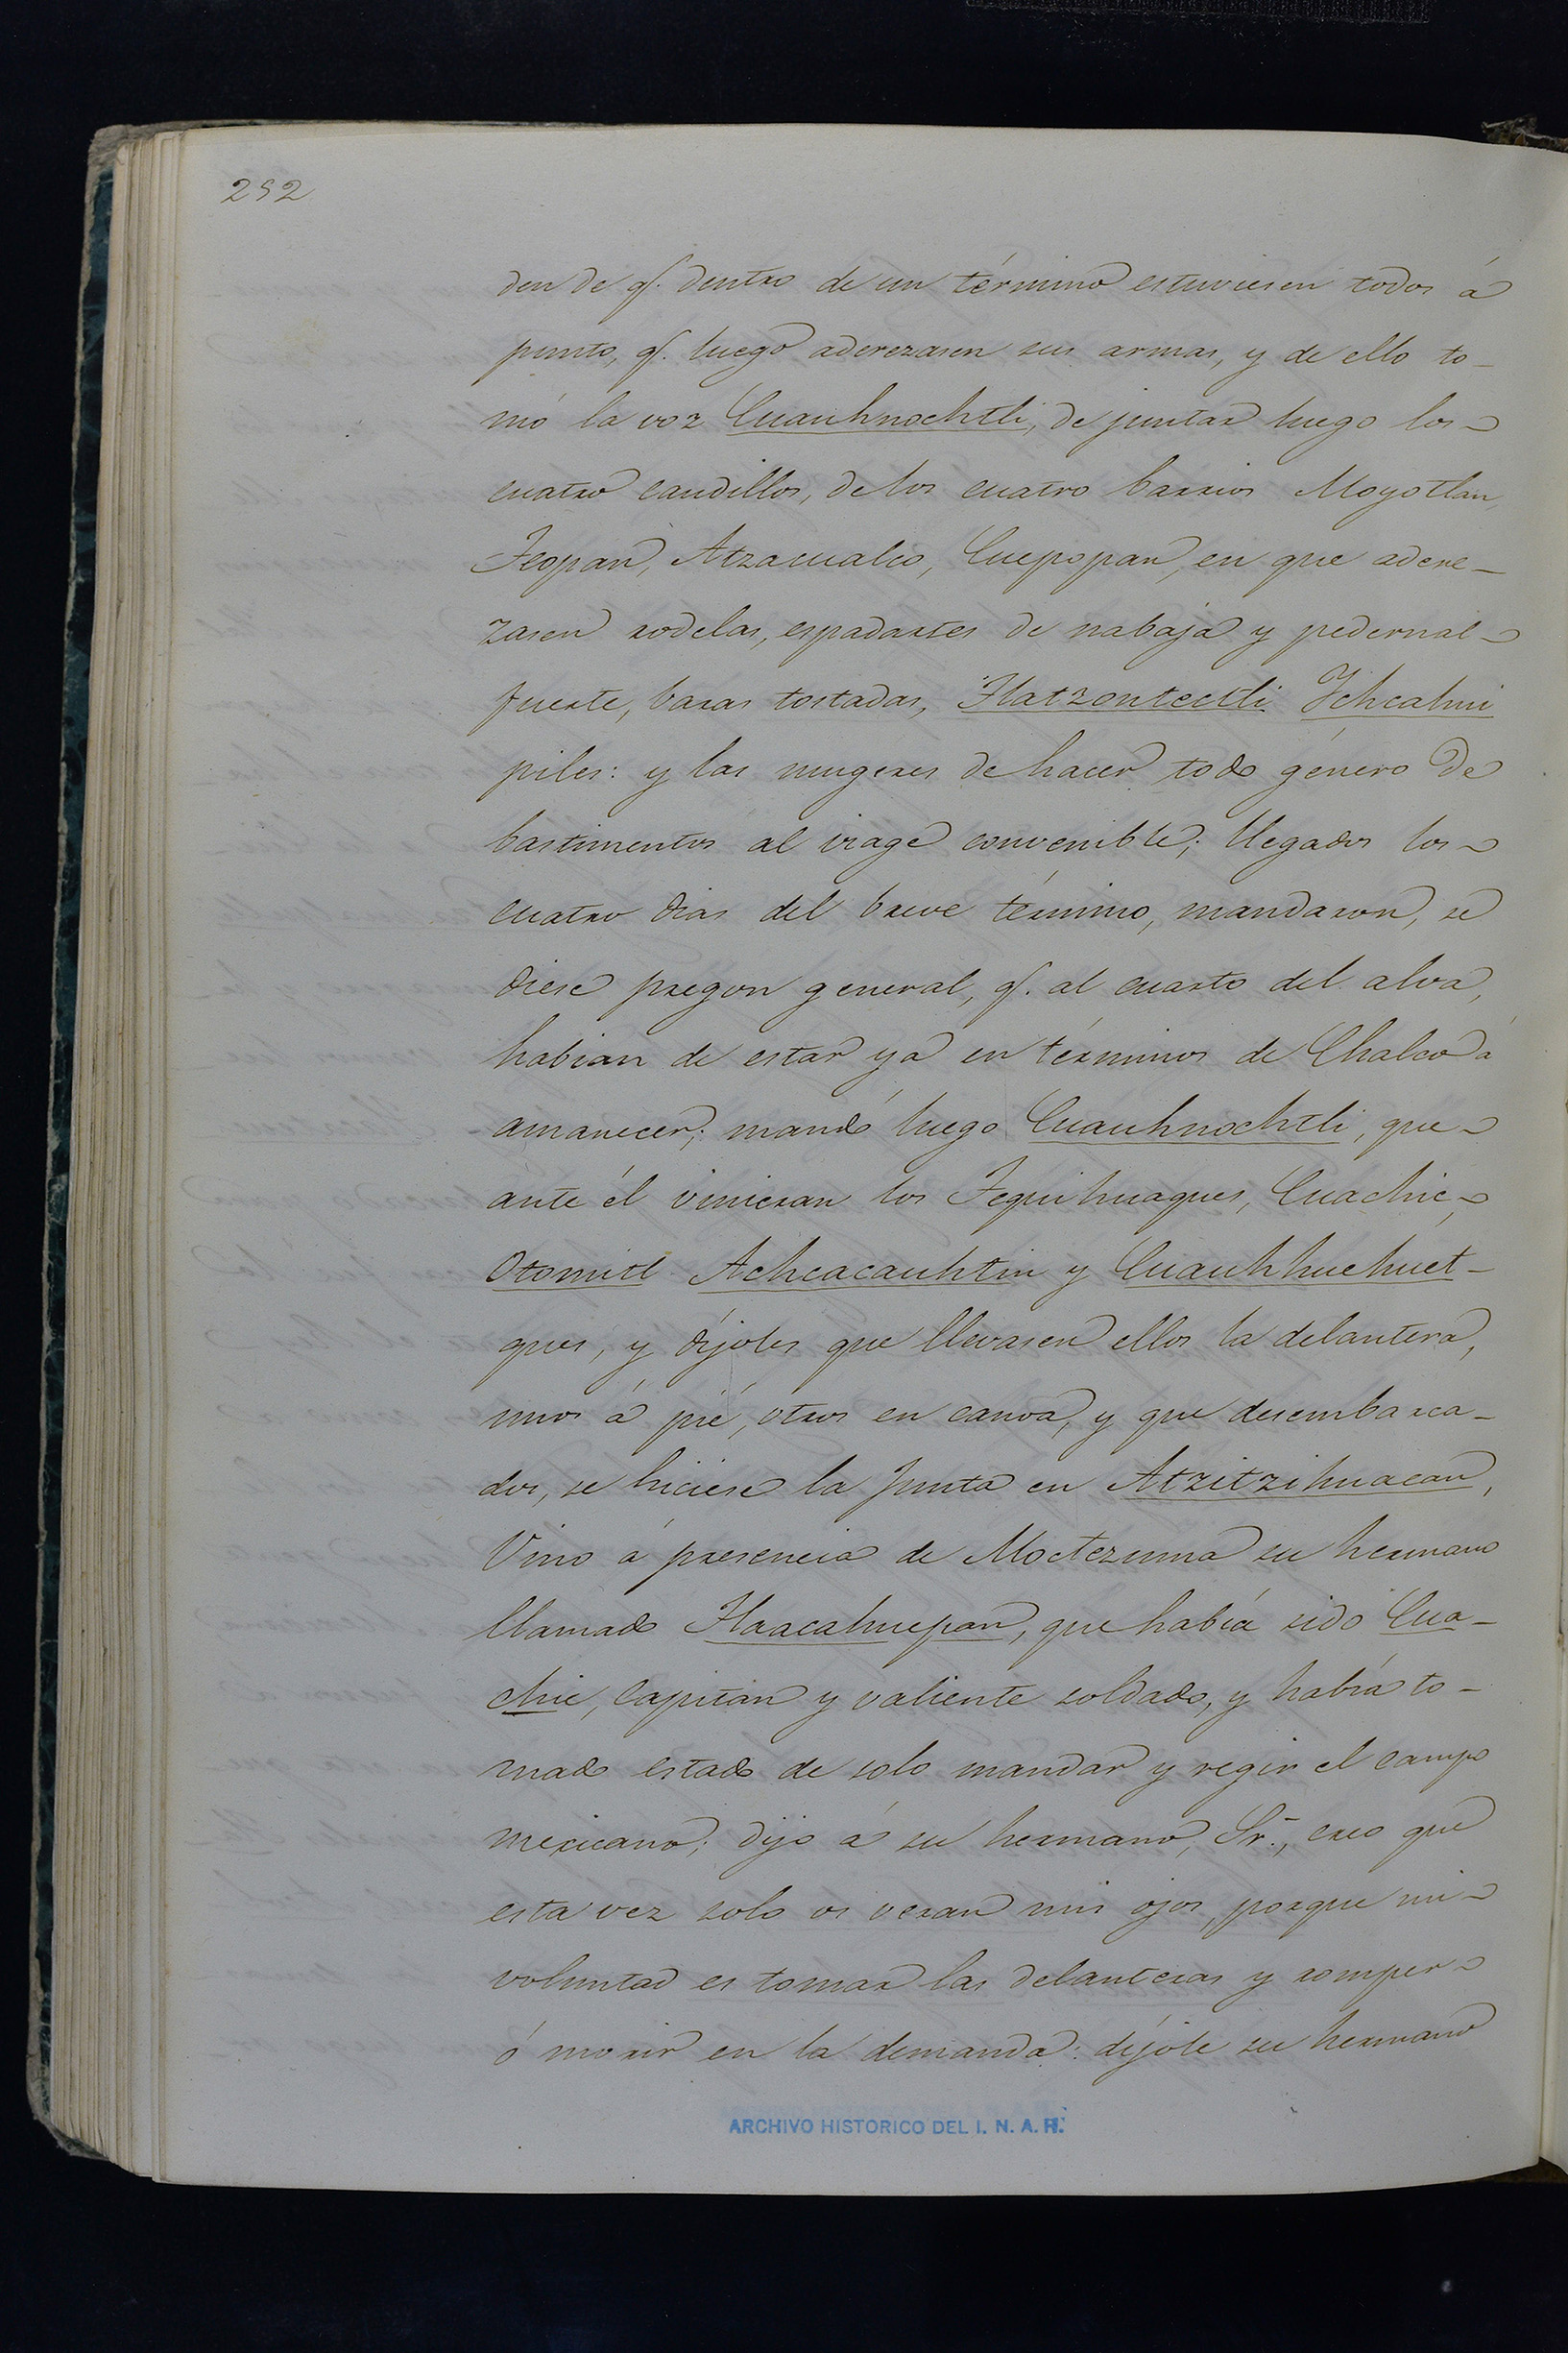 292
den de q.e dentro de un término estuviesen todos á
punto, q.e luego aderezasen sus armas, y de ello to-
mó la voz Cuauhnochtli, de juntar luego los
cuatro caudillos, de los cuatro barrios Moyotlan,
Teopan, Atzacualco, Cuepopan, en que adere-
zasen rodelas, espadartes de nabaja y pedernal
fuerte, baras tostadas, Tlatzontectli Ychcahui
piles: y las mugeres de hacer todo género de
bastimentos al viage convenible; llegados los
cuatro dias del breve término, mandaron, se
diese pregon general, q.e al cuarto del alva,
habian de estar ya en términos de Chalco á
amanecer; mandó luego Cuauhnochtli, que
ante él vinieran los Tequihuaques, Cuachic,
Otomitl Achcacauhtin y Cuauhhuehuet-
ques, y díjoles que llevasen ellos la delantera,
unos á pié, otros en canoa, y que desembarca-
dos, se hiciese la Junta en Atzitzihuacan,
Vino á presencia de Moctezuma su hermano
llamado Tlacahuepan, que había sido Cua-
chic, Capitan y valiente soldado, y había to-
mado estado de solo mandar y regir el campo
mexicano; dijo á su hermano, Sr., creo que
esta vez solo os veran mis ojos, porque mi
voluntad es tomar las delanteras y romper
ó morir en la demanda: díjole su hermano
ARCHIVO HISTORICO DEL I. N. A. H.